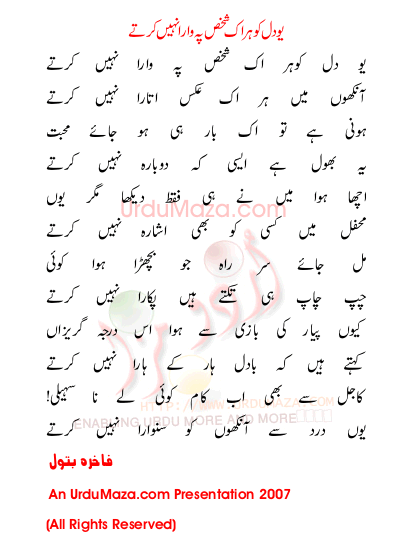 یو دل کو ہر اک شخص پہ وارا نہیں کرتے
یو دل کوہر اک شخص پہ وارا نہیں کرتے
آنکھوں میں ہر اک عکس اتارا نہیں کرتے
ہونی ہے تو اک بار ہی ہو جائے محبت
یہ بھول ہے ایسی کہ دوبارہ نہیں کرتے
اچھا ہوا میں نے ہی فقط دیکھا مگر یوں
UrduMaza.com
محفل میں کسی کو بھی اشارہ نہیں کرتے
مل جائے سر راہ جو بچھڑا ہوا کوئی
چپ چاپ ہی تکتے ہیں پکارا نہیں کرتے
کیوں پیار کی بازی سے ہوا اس درجہ گریزاں
کہتے ہیں کہ بادل ہار کے ہارا نہیں کرتے
کاجل سے بھی اب کام کوئی لے نا سہیلی!
HTTP://WWW.URDUMAZA.COM
ENABLING URDU MORE AND MORE
یوں درد سے آنکھوں کو سنوارا نہیں کرتے
فاخرہ بتول
An UrduMaza.com Presentation 2007
(All Rights Reserved)